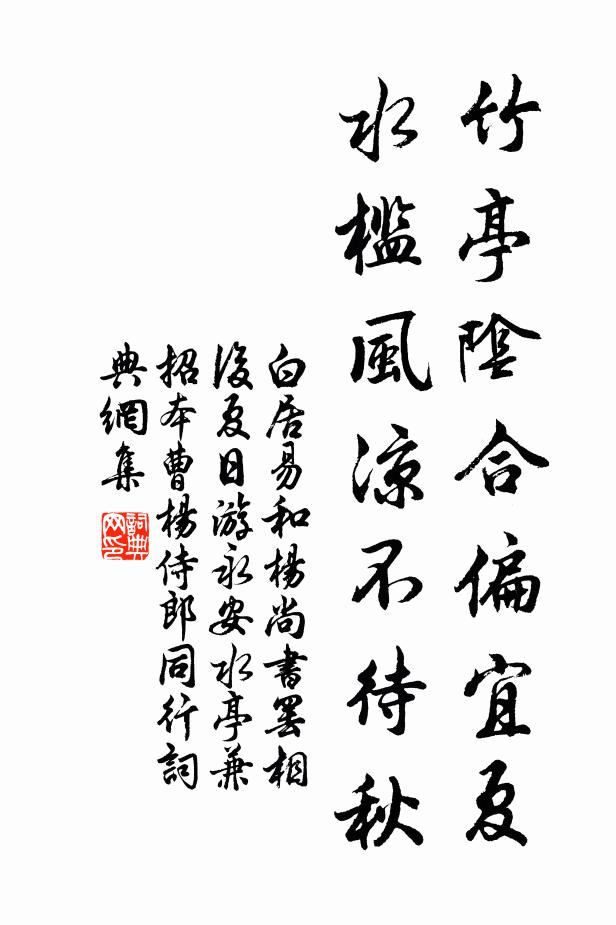 竹亭陰合偏宜夏
水檻風涼不待秋
白居易和楊尚書罷相
後夏日游永安水亭兼
招本曹楊侍郎同行詞
典網集
詞典
网印